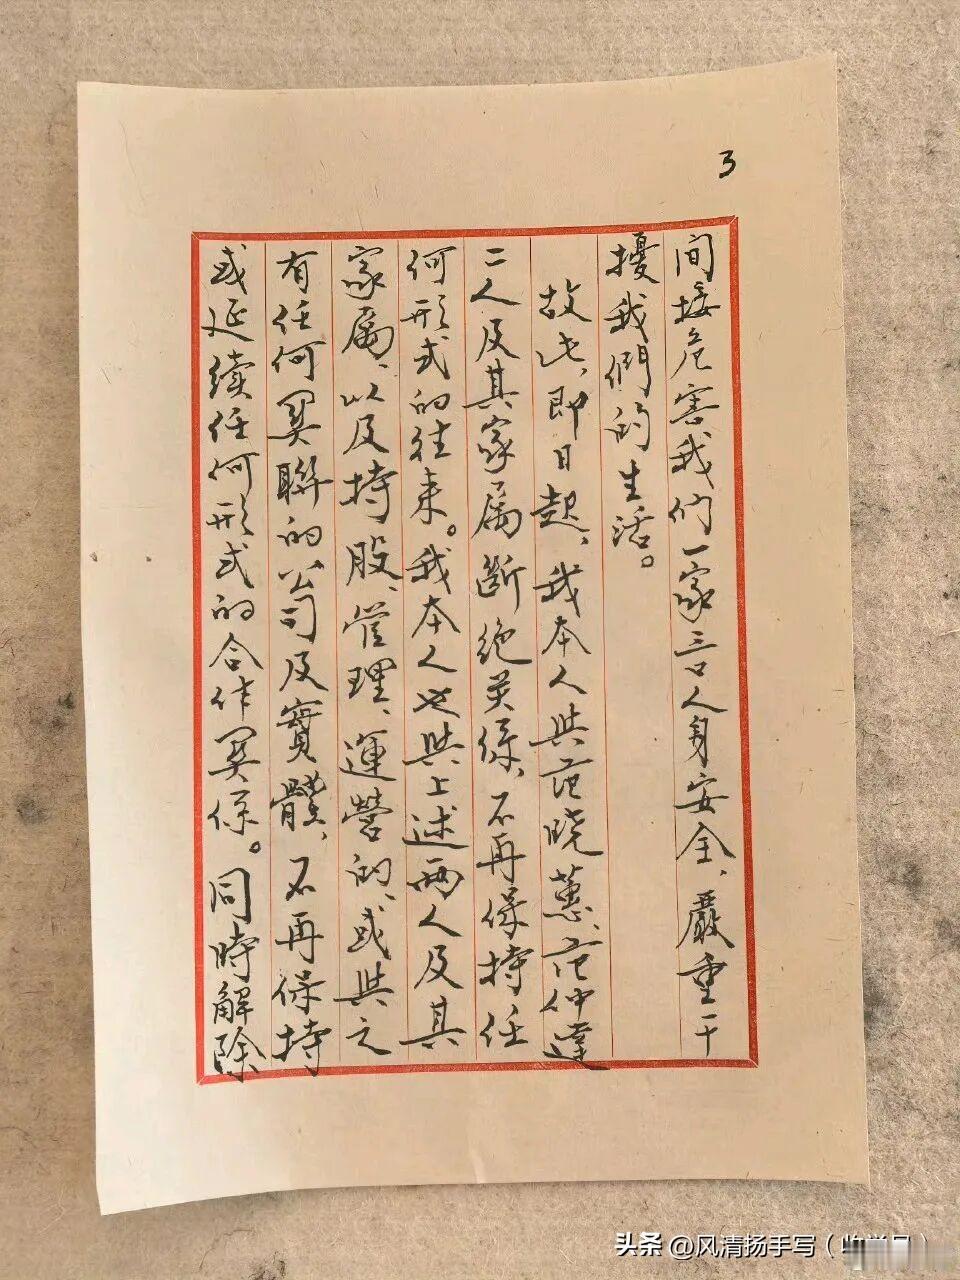 3
间接危害我们一家三口人身安全、嚴重干
擾我們的生活。
故此、即日起、我本人與范晓蕙、范仲達
二人及其家属斷绝关係、不再保持任
何形式的往来。我本人也與上述两人及其
家属、以及持股、管理、運營的、或與之
有任何関聯的公司及實體、不再保持
或延续任何形式的合作関係。同時解除
头条 @风清扬手写